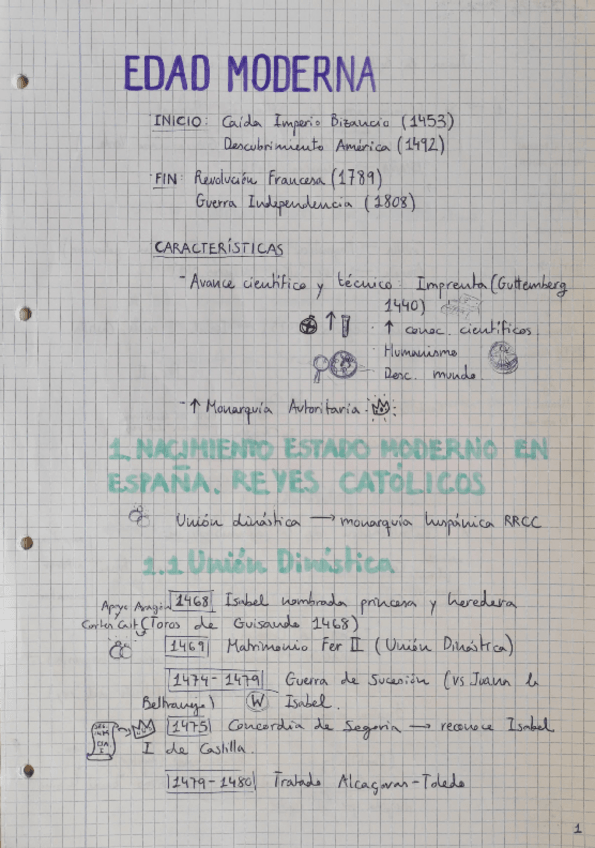 EDAD MODERNA
INICIO: Caída Imperio Bizancio (1453)
Descubrimiento América (1492)
FIN: Revolución Francesa (1789)
Guerra Independencia (1808)
CARACTERÍSTICAS
- Avance científico y técnico: Imprenta (Guttemberg
1440)
↑ · ↑ conoc. científicos
· Humanismo
Desc. mundo.
- ↑ Monarquía Autoritaria
1. NACIMIENTO ESTADO MODERNO EN
ESPAÑA. REYES CATÓLICOS
Unión dinástica → monarquía hispánica RRCC
1.1 Unión Dinástica
Apoyo Aragón 1468 Isabel nombrada princesa y heredera
Cortes Cast (Toros de Guisando 1468)
1469 Matrimonio Fer II (Unión Dinástica)
1474-1479 Guerra de Sucesión (vs Juana la
Beltraneja) W Isabel.
1475 Concordia de Segovia → reconoce Isabel
I de Castilla.
1479-1480 Tratado Alcaçovas-Toledo
1